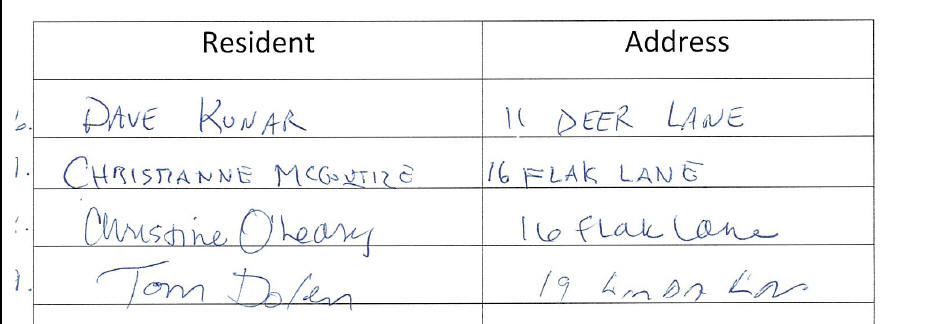 Resident Address
6. DAVE KUNAR 11 DEER LANE
1. CHRISTIANNE MCGUTIRE 16 FLAK LANE
Christine O'Leary 16 Flak Lane
1. Tom Dolen 19